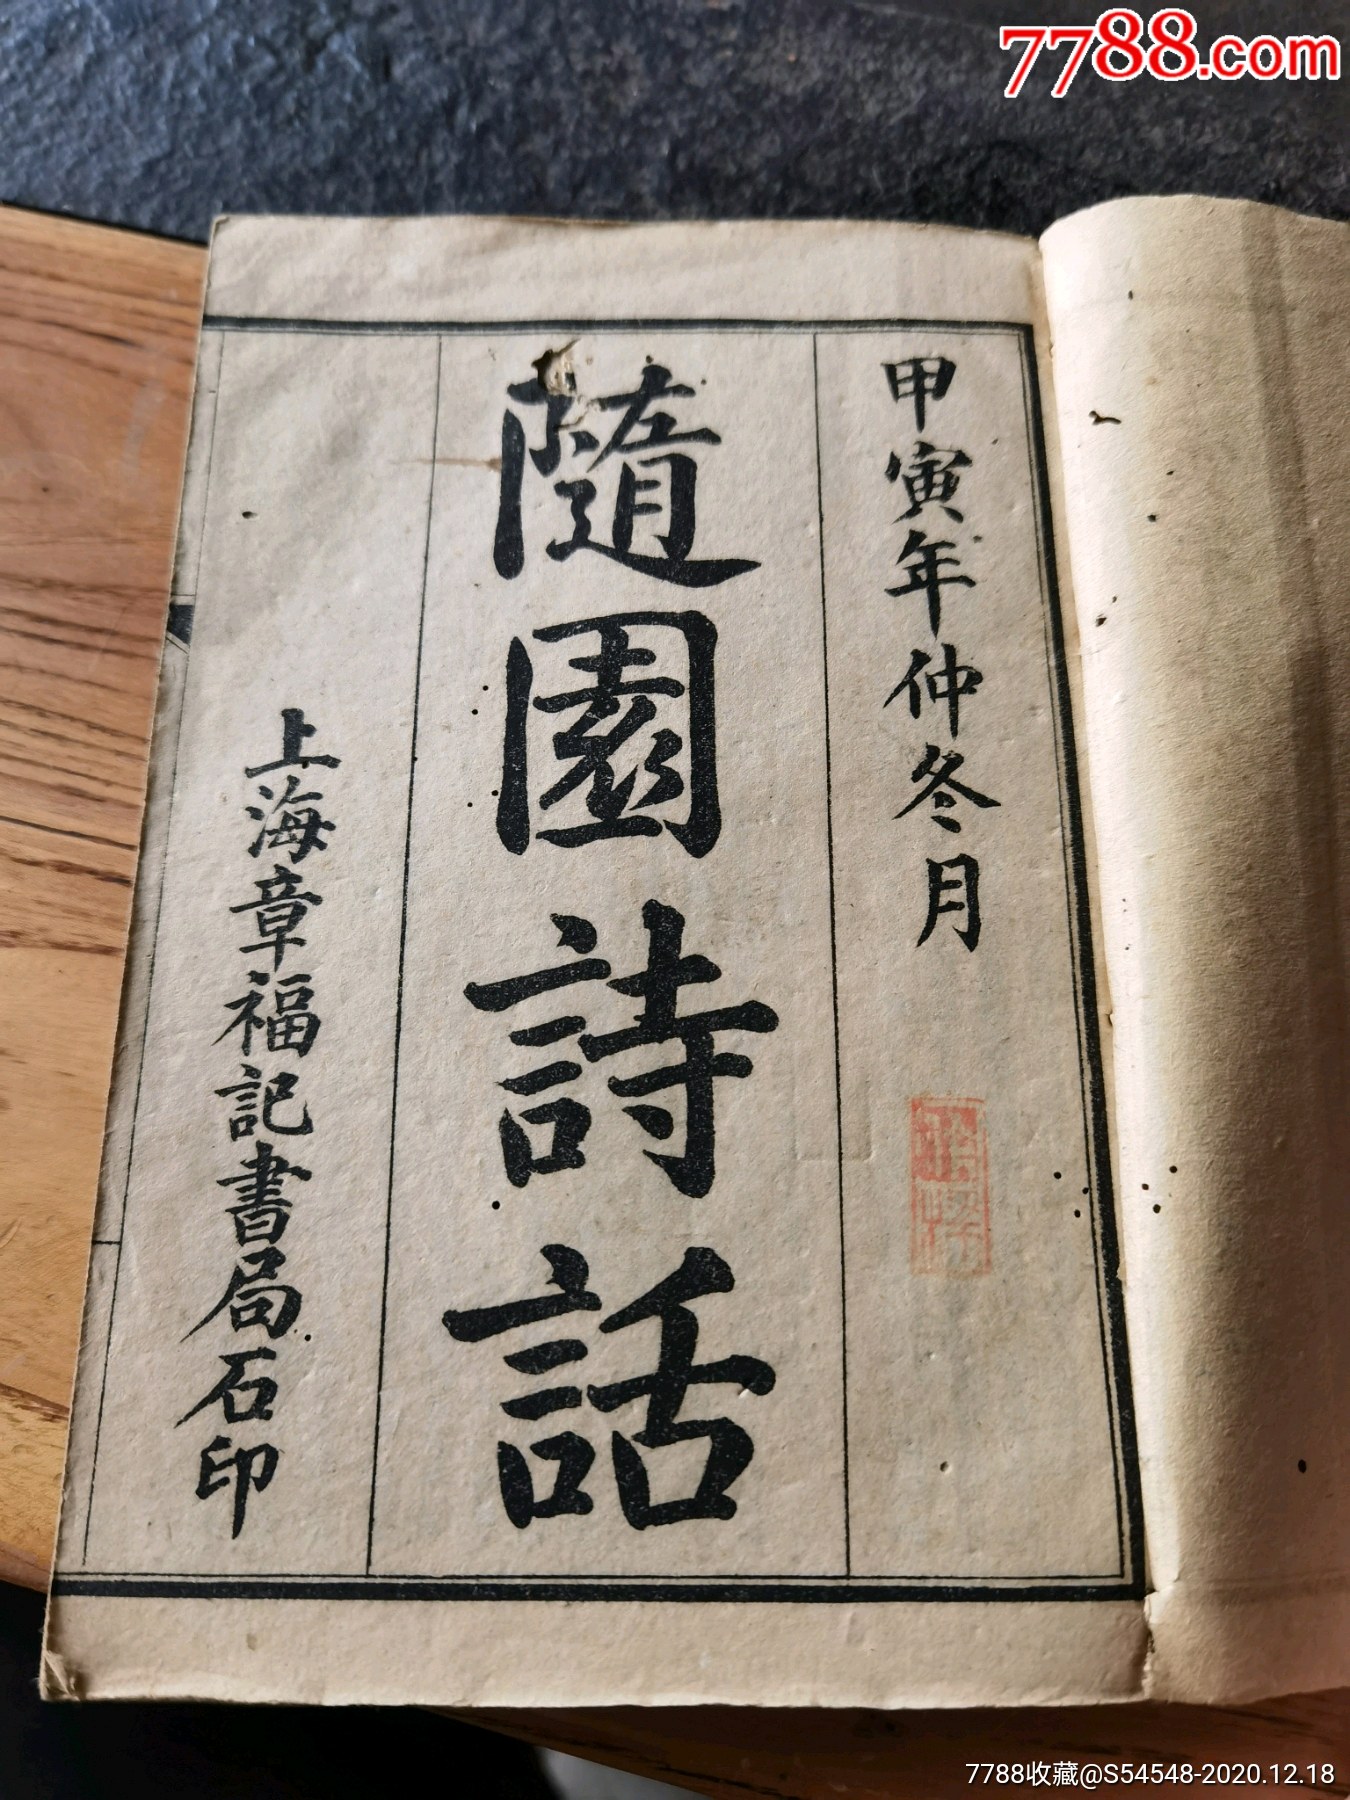 7788.com
甲寅年仲冬月
隨園詩話
上海章福記書局石印
7788收藏@S54548-2020.12.18